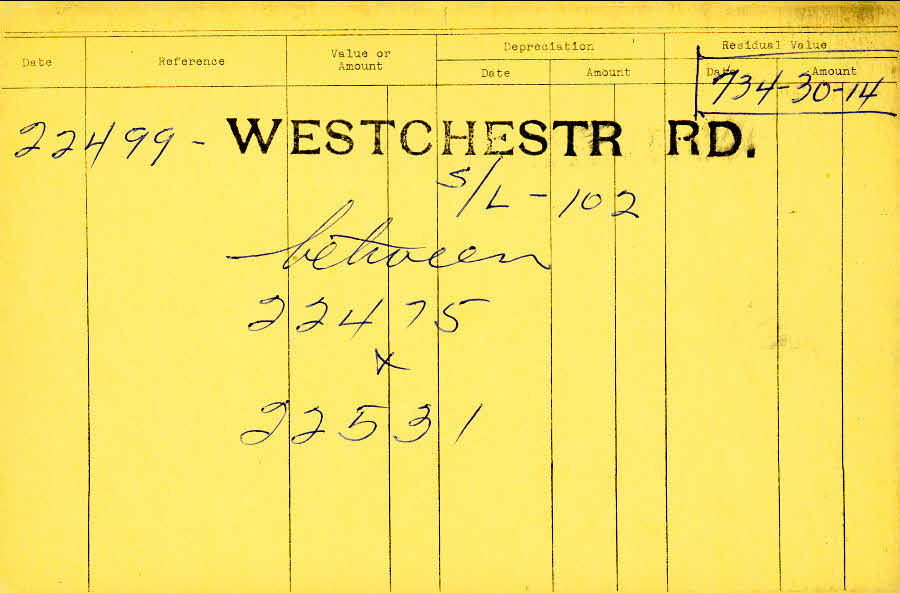 Date Reference Value or Amount Depreciation Residual Value
Date Amount Date Amount
734-30-14
22499 - WESTCHESTR RD.
S/L - 102
between
22475
&
22531